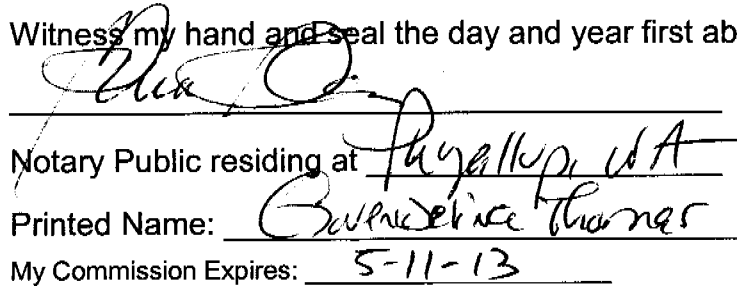 Witness my hand and seal the day and year first ab
Notary Public residing at Puyallup, WA
Printed Name: Gwendeline Thomas
My Commission Expires: 5-11-13